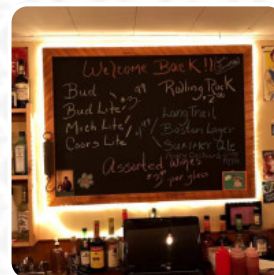 Welcome Back!!
Bud
Bud Lite
Mich Lite
Coors Lite
Rolling Rock
Long Trail
Boston Lager
Summer Ale
Assorted Wines
per glass